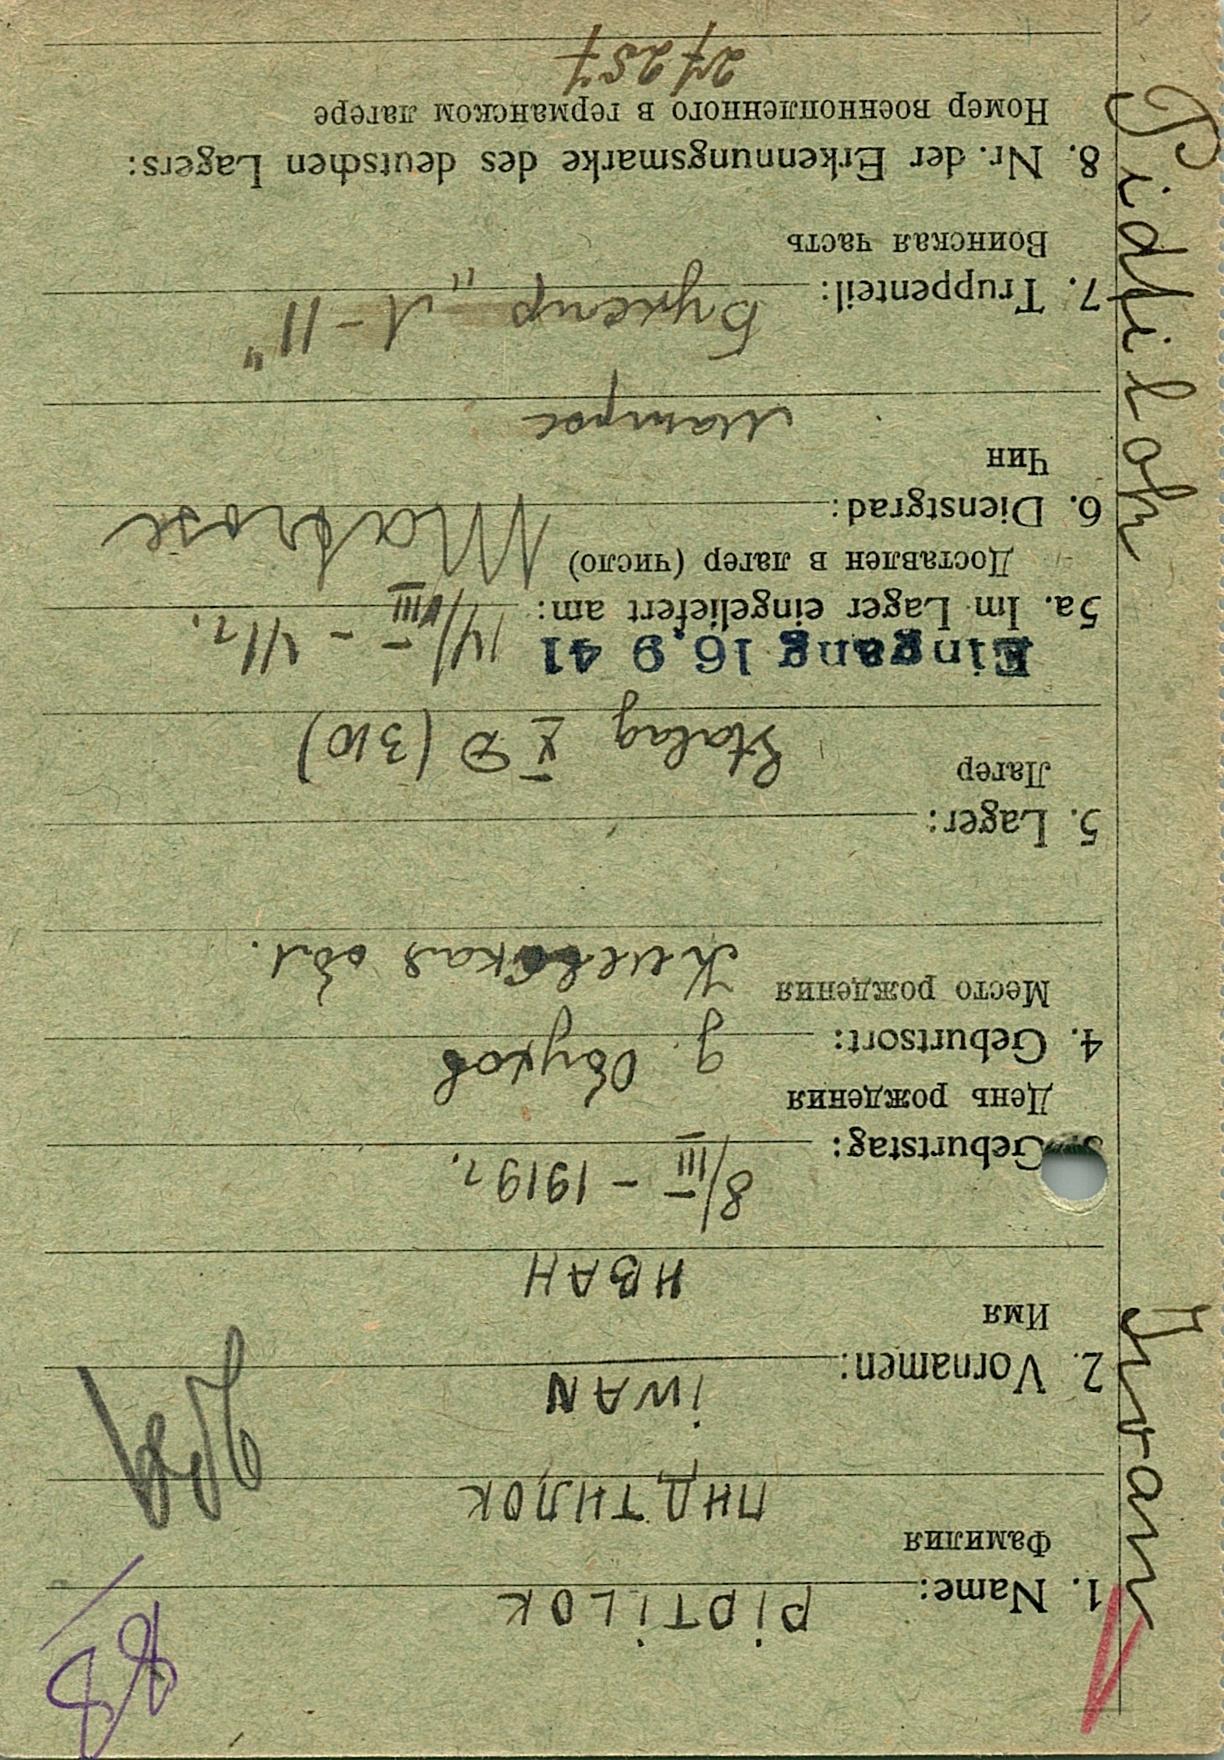 1. Name: PIDTILOK
Фамилия
ПИДТИЛОК
2. Vornamen: iWAN
Имя
ИВАН
3. Geburtstag: 8/III – 1919 г.
День рождения
4. Geburtsort: д. Обухов
Место рождения Киевская обл.
5. Lager:
Лагерь
Stalag X D (310)
Eingang 16. 9 41
5a. Im Lager eingeliefert am: 14/VIII – 41 г.
Доставлен в лагер (число)
6. Dienstgrad: Matrose
Чин
Матрос
7. Truppenteil: Буксир „Л – 11"
Воинская часть
8. Nr. der Erkennungsmarke des deutschen Lagers:
Номер военнопленного в германском лагере
27257
Iwan Pidtilok